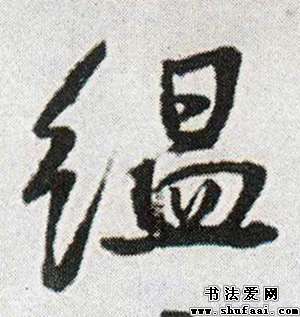 缊
书法爱网
www.shufaai.com